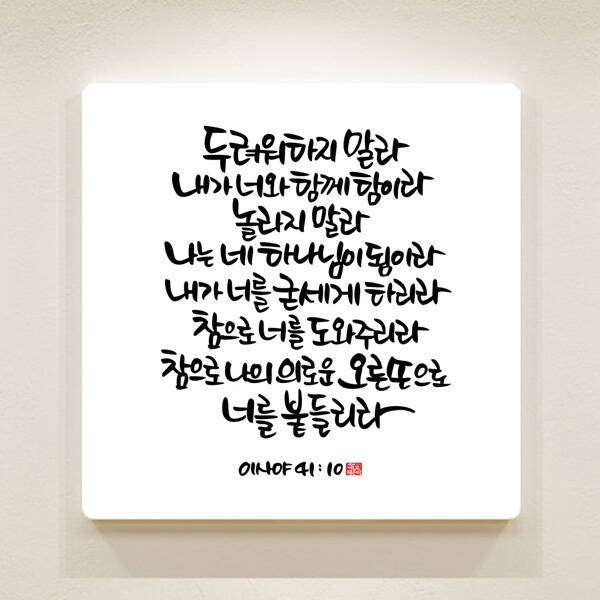 두려워하지 말라
내가 너와 함께 함이라
놀라지 말라
나는 네 하나님이 됨이라
내가 너를 굳세게 하리라
참으로 너를 도와주리라
참으로 나의 의로운 오른손으로
너를 붙들리라
이사야 41:10